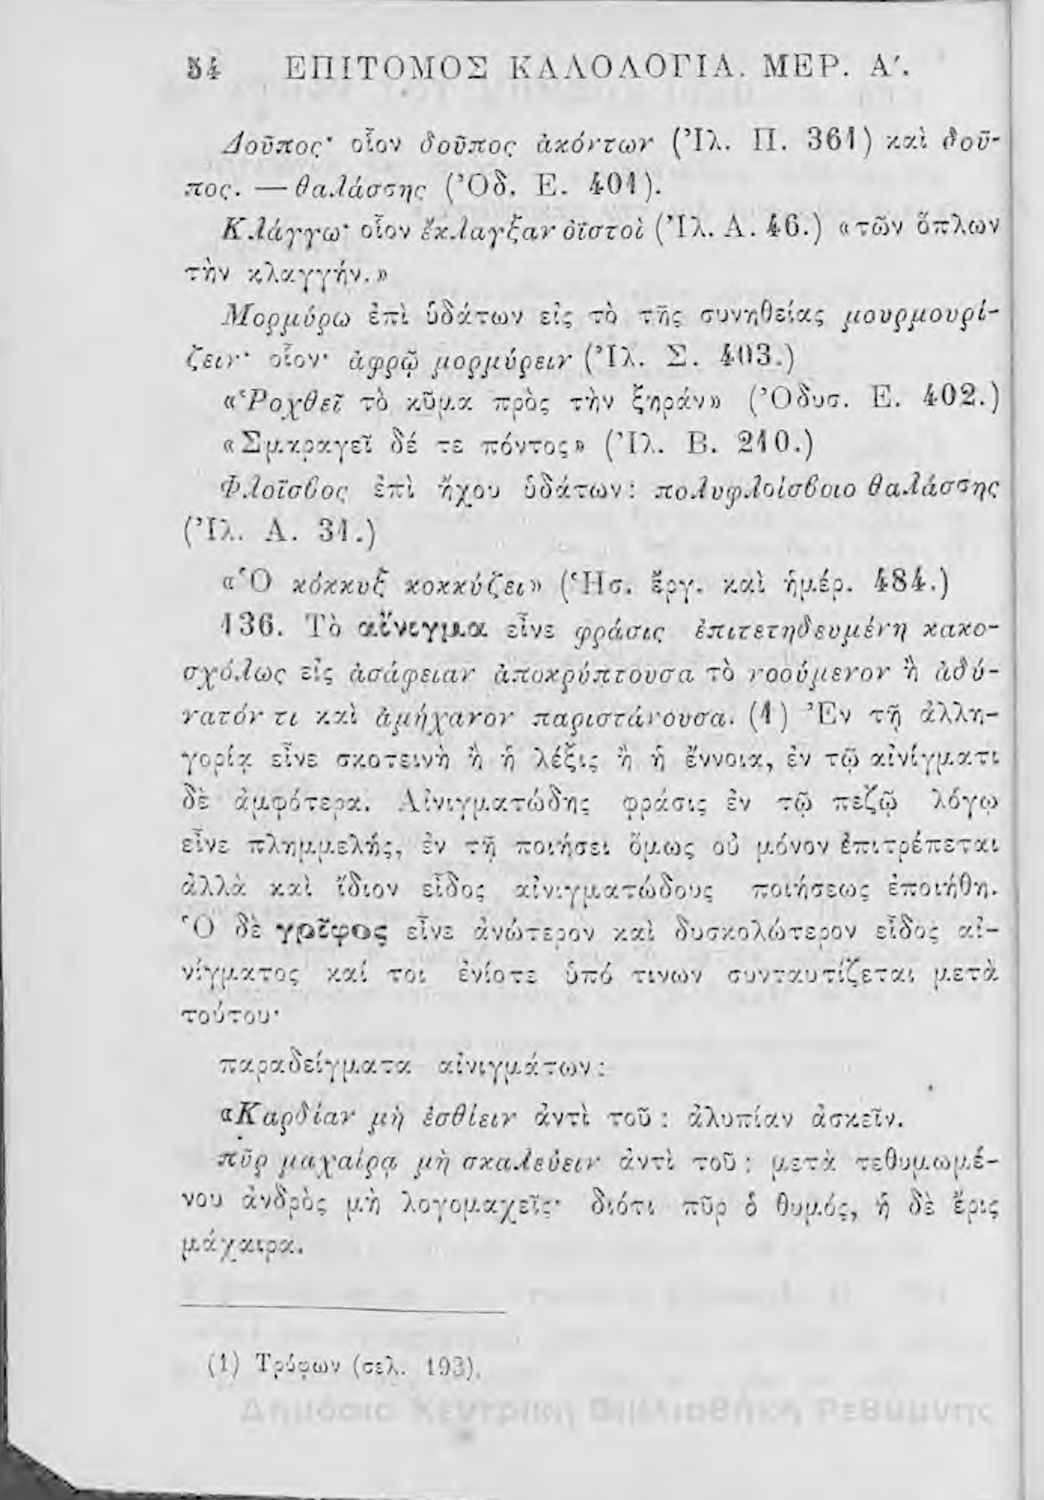 54 ΕΠΙΤΟΜΟΣ ΚΑΛΟΛΟΓΙΑ. ΜΕΡ. Α΄.
Δοῦπος· οἷον δοῦπος ἀκόντων (Ἰλ. Π. 361) καὶ δοῦ-
πος. — θαλάσσης (Ὀδ. Ε. 401).
Κλάγγω· οἷον ἔκλαγξαν ὀϊστοὶ (Ἰλ. Α. 46.) «τῶν ὅπλων
τὴν κλαγγήν.»
Μορμύρω ἐπὶ ὑδάτων εἰς τὸ τῆς συνηθείας μουρμουρί-
ζειν· οἷον· ἀφρῷ μορμύρειν (Ἰλ. Σ. 403.)
«Ῥοχθεῖ τὸ κῦμα πρὸς τὴν ξηράν» (Ὀδυσ. Ε. 402.)
«Σμαραγεῖ δέ τε πόντος» (Ἰλ. Β. 210.)
Φλοῖσβος ἐπὶ ἤχου ὑδάτων: πολυφλοίσβοιο θαλάσσης
(Ἰλ. Α. 34.)
«Ὁ κόκκυξ κοκκύζει» (Ἡσ. ἔργ. καὶ ἡμέρ. 484.)
136. Τὸ αἴνιγμα εἶνε φράσις ἐπιτετηδευμένη κακο-
σχόλως εἰς ἀσάφειαν ἀποκρύπτουσα τὸ νοούμενον ἢ ἀδύ-
νατόν τι καὶ ἀμήχανον παριστάνουσα. (1) Ἐν τῇ ἀλλη-
γορίᾳ εἶνε σκοτεινὴ ἢ ἡ λέξις ἢ ἡ ἔννοια, ἐν τῷ αἰνίγματι
δὲ ἀμφότερα. Αἰνιγματώδης φράσις ἐν τῷ πεζῷ λόγῳ
εἶνε πλημμελής, ἐν τῇ ποιήσει ὅμως οὐ μόνον ἐπιτρέπεται
ἀλλὰ καὶ ἴδιον εἶδος αἰνιγματώδους ποιήσεως ἐποιήθη.
Ὁ δὲ γρῖφος εἶνε ἀνώτερον καὶ δυσκολώτερον εἶδος αἰ-
νίγματος καί τοι ἐνίοτε ὑπό τινων συνταυτίζεται μετὰ
τούτου·
παραδείγματα αἰνιγμάτων:
«Καρδίαν μὴ ἐσθίειν ἀντὶ τοῦ: ἀλυπίαν ἀσκεῖν.
πῦρ μαχαίρᾳ μὴ σκαλεύειν ἀντὶ τοῦ: μετὰ τεθυμωμέ-
νου ἀνδρὸς μὴ λογομαχεῖς· διότι πῦρ ὁ θυμός, ἡ δὲ ἔρις
μάχαιρα.
(1) Τρύφων (σελ. 193).
Δημόσια Κεντρική Βιβλιοθήκη Ρεθύμνης